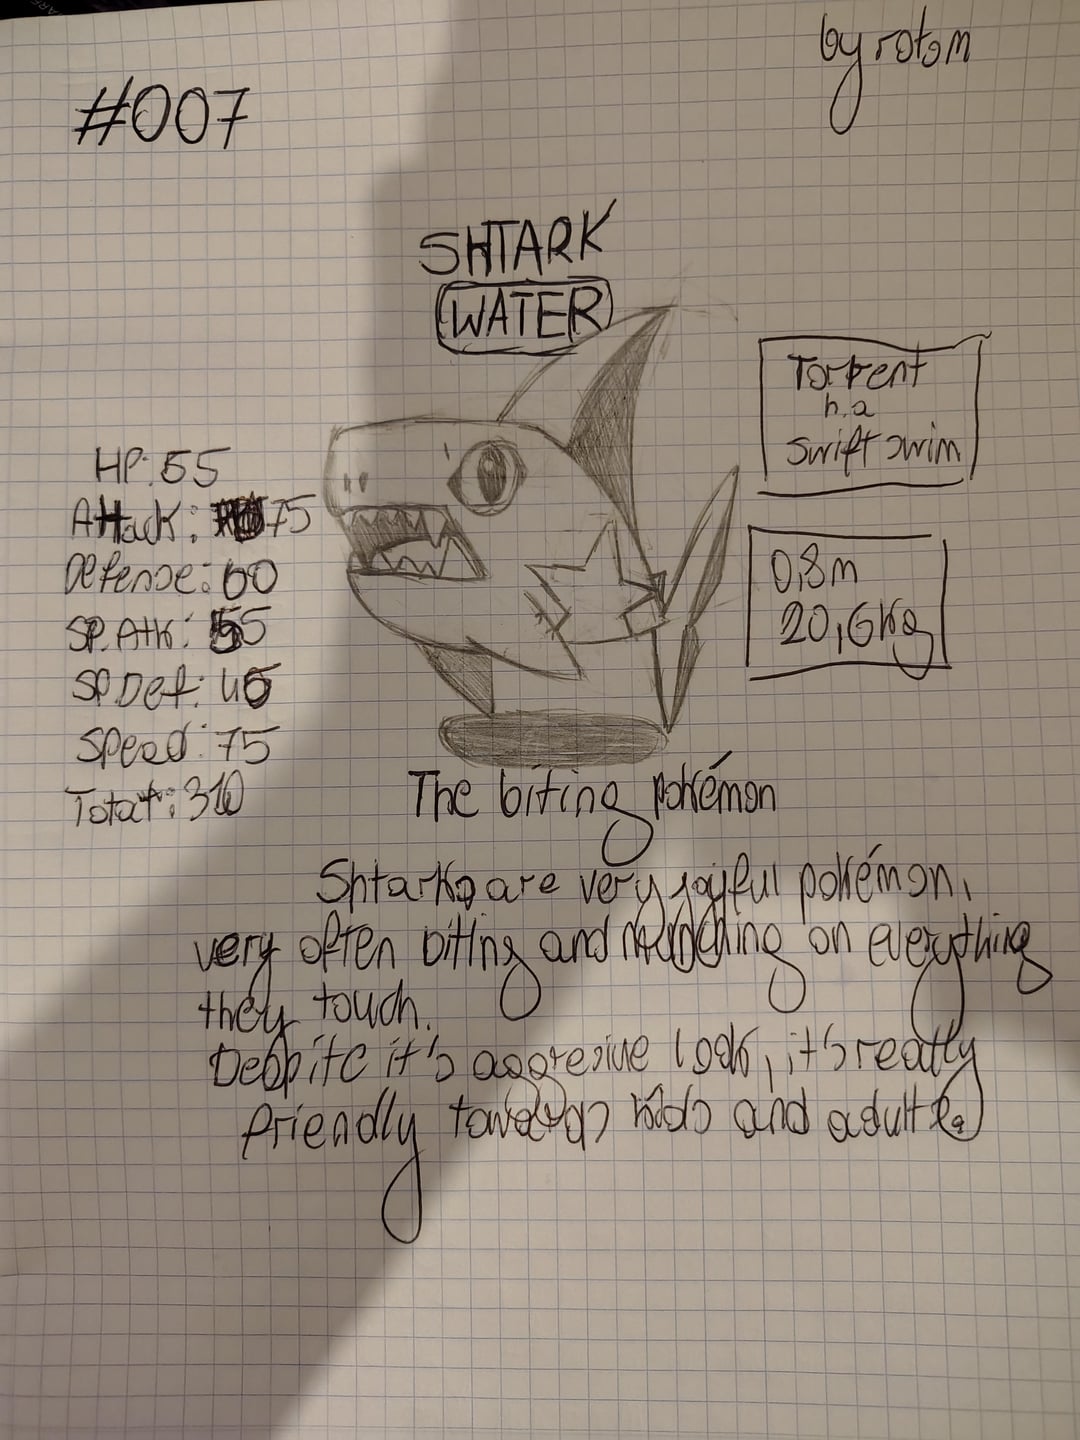 by rotom
#007
SHTARK
WATER
Torrent
h.a
swift swim
HP: 55
Attack: 75
Defense: 60
SP. Atk: 55
SP. Def: 45
Speed: 75
Total: 310
0,8m
20,6kg
The biting pokémon
Shtarks are very joyful pokémon,
very often biting and munching on everything
they touch.
Despite it's aggresive look, it's really
friendly towards kids and adults